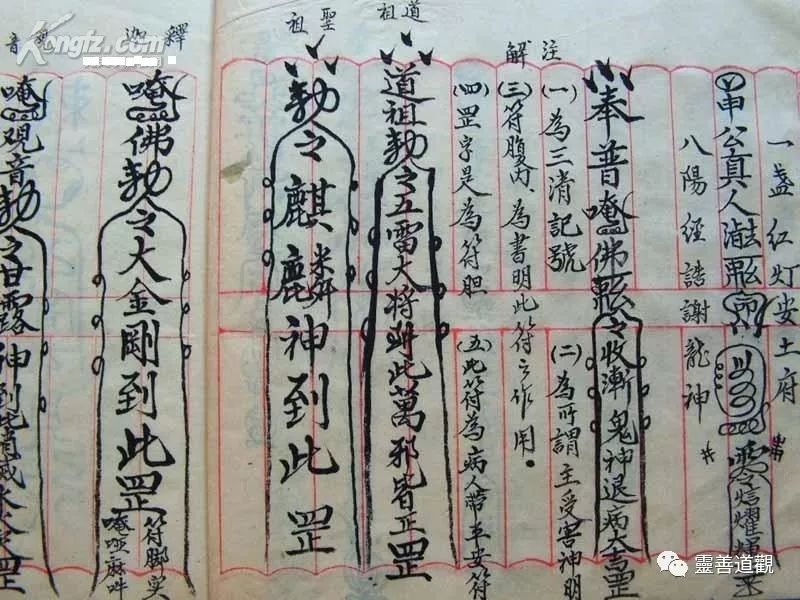 一盏红灯安土府
八陽經誥謝龍神
申公真人
奉普唵佛
之收斬鬼神退病大吉罡
注解
(一)為三清記號
(二)為所謂主受害神明
(三)符腹内、為書明此符之作用。
(四)罡字是為符胆
(五)此符為病人帶平安符
道祖
道祖勅之五雷大将到此萬邪皆正罡
聖祖
勅之麒麟神到此罡
釋迦
唵佛勅之大金剛到此罡
符脚寫
唵啞麻吽
觀音
唵觀音勅之甘露神到此消滅
罡
Kongfz.com
靈善道觀